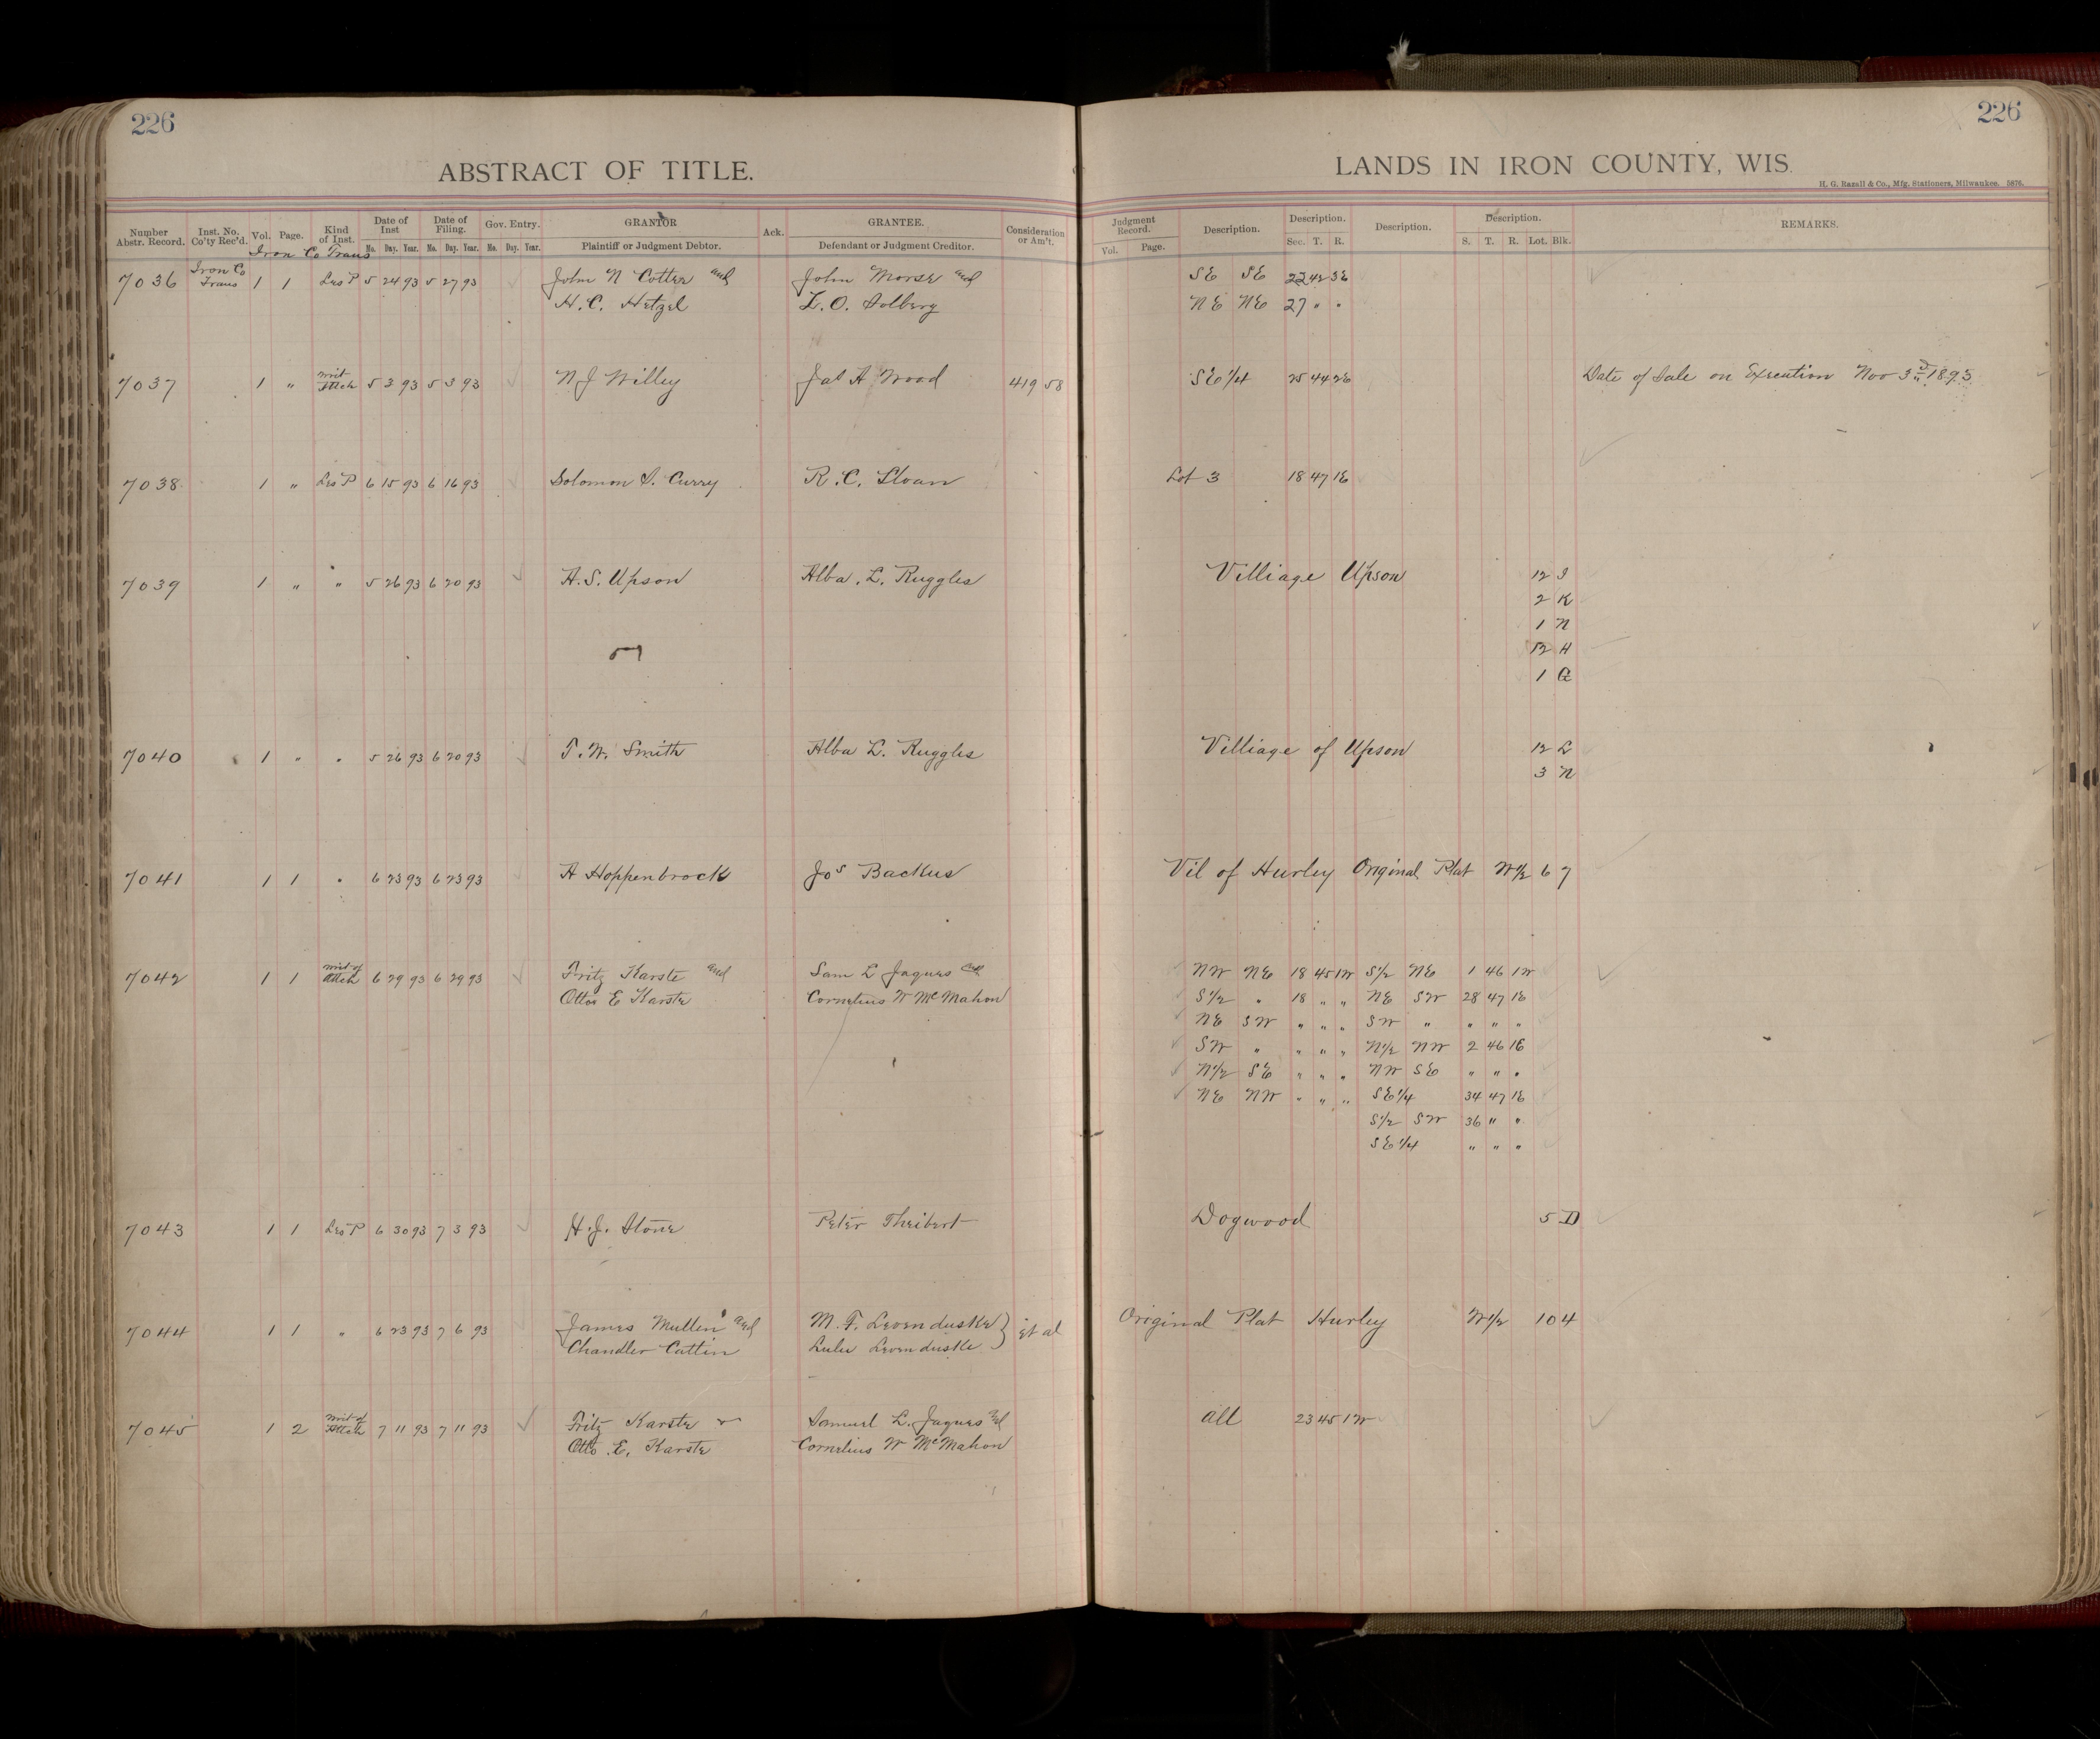 226
226
ABSTRACT OF TITLE.
LANDS IN IRON COUNTY, WIS.
H. G. Razall & Co., Mfg. Stationers, Milwaukee. 5876.
Number Abstr. Record. Inst. No. Co'ty Rec'd. Vol. Page. Kind of Inst. Date of Inst Date of Filing. Gov. Entry. GRANTOR Ack. GRANTEE. Consideration or Am't. Judgment Record. Description. Description. Description. Description. REMARKS.
Mo. Day. Year. Mo. Day. Year. Mo. Day. Year. Plaintiff or Judgment Debtor. Defendant or Judgment Creditor. Vol. Page. Sec. T. R. S. T. R. Lot. Blk.
Iron Co Trans
7036 Iron Co Trans 1 1 Les P 5 24 93 5 27 93 John N Cotter and John Morse and SE SE 22 42 3E
H.C. Hetzel L.O. Solberg NE NE 27 " "
7037 1 " Writ Attch 5 3 93 5 3 93 N J Willey Jas A Wood 419 58 SE 1/4 25 44 2E Date of Sale on Execution Nov 3rd 1893
7038 1 " Les P 6 15 93 6 16 93 Solomon S. Curry R.C. Sloan Lot 3 18 47 1E
7039 1 " " 5 26 93 6 20 93 A.S. Upson Alba. L. Ruggles Villiage Upson 12 I
2 K
1 N
12 H
1 G
7040 1 " " 5 26 93 6 20 93 T.W. Smith Alba L. Ruggles Villiage of Upson 12 L
3 N
7041 1 1 " 6 23 93 6 23 93 A Hoppenbrock Jos Backus Vil of Hurley Original Plat W1/2 6 7
7042 1 1 Writ of Attch 6 29 93 6 29 93 Fritz Karste and Sam L Jaques and NW NE 18 45 1W S1/2 NE 1 46 1W
Otto E Karste Cornelius W McMahon S1/2 " 18 " " NE SW 28 47 1E
NE SW " " " SW " " " "
SW " " " " N1/2 NW 2 46 1E
N1/2 SE " " " NW SE " " "
NE NW " " " SE1/4 34 47 1E
S1/2 SW 36 " "
SE1/4 " " "
7043 1 1 Les P 6 30 93 7 3 93 H.J. Stone Peter Theibert Dogwood 5 D
7044 1 1 " 6 23 93 7 6 93 James Mullen and M.F. Levenduske } et al Original Plat Hurley W1/2 10 4
Chandler Cattin Lulu Levenduske
7045 1 2 Writ of Attch 7 11 93 7 11 93 Fritz Karste Samuel L. Jaques and all 23 45 1W
Otto E. Karste Cornelius W McMahon